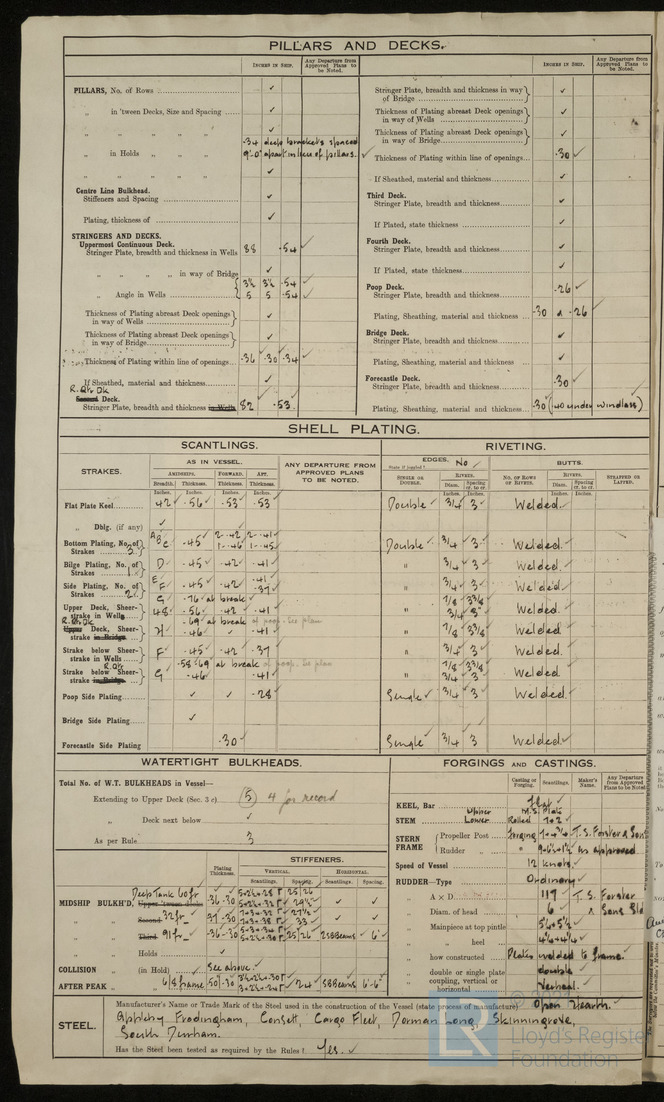 PILLARS AND DECKS.
INCHES IN SHIP.
Any Departure from Approved Plans to be Noted.
PILLARS, No. of Rows ✓
„ in 'tween Decks, Size and Spacing ✓
„ „ „ „ „ ✓
„ in Holds „ „ .34 deep brackets spaced 9'-0" apart in lieu of pillars. ✓
„ „ „ „ „ ✓
Centre Line Bulkhead.
Stiffeners and Spacing ✓
Plating, thickness of ✓
STRINGERS AND DECKS.
Uppermost Continuous Deck.
Stringer Plate, breadth and thickness in Wells 88 .54 ✓
„ „ „ „ in way of Bridge ✓
„ Angle in Wells 3½ 3½ .54 ✓
5 5 .54 ✓
Thickness of Plating abreast Deck openings in way of Wells ✓
Thickness of Plating abreast Deck openings in way of Bridge ✓
Thickness of Plating within line of openings .36 .30 .34 ✓
If Sheathed, material and thickness ✓
R. Qr. Dk
Second Deck.
Stringer Plate, breadth and thickness in Wells 82 .53
INCHES IN SHIP.
Any Departure from Approved Plans to be Noted.
Stringer Plate, breadth and thickness in way of Bridge ✓
Thickness of Plating abreast Deck openings in way of Wells ✓
Thickness of Plating abreast Deck openings in way of Bridge ✓
Thickness of Plating within line of openings .30 ✓
If Sheathed, material and thickness ✓
Third Deck.
Stringer Plate, breadth and thickness ✓
If Plated, state thickness ✓
Fourth Deck.
Stringer Plate, breadth and thickness ✓
If Plated, state thickness ✓
Poop Deck.
Stringer Plate, breadth and thickness .26 ✓
Plating, Sheathing, material and thickness .30 & .26 ✓
Bridge Deck.
Stringer Plate, breadth and thickness ✓
Plating, Sheathing, material and thickness ✓
Forecastle Deck.
Stringer Plate, breadth and thickness .30 ✓
Plating, Sheathing, material and thickness .30 (.40 under windlass)
SHELL PLATING.
SCANTLINGS.
RIVETING.
STRAKES.
AS IN VESSEL.
AMIDSHIPS. FORWARD. AFT.
Breadth. Thickness. Thickness. Thickness.
Inches. Inches. Inches. Inches.
ANY DEPARTURE FROM APPROVED PLANS TO BE NOTED.
EDGES. No
State if joggled?
SINGLE OR DOUBLE.
RIVETS.
Diam. Spacing cr. to cr.
Inches. Inches.
BUTTS.
NO. OF ROWS OF RIVETS.
RIVETS.
Diam. Spacing cr. to cr.
Inches. Inches.
STRAPPED OR LAPPED.
Flat Plate Keel 42 ✓ .56 ✓ .53 ✓ .53 ✓ Double ✓ 3/4 3 ✓ Welded ✓
„ Dblg. (if any) ✓
Bottom Plating, No. of Strakes 3 A B C .45 ✓ 2-.42 1-.46 2-.41 1-.45 Double ✓ 3/4 3 ✓ Welded ✓
Bilge Plating, No. of Strakes 1 D .45 ✓ .42 ✓ .41 „ 3/4 3 ✓ Welded ✓
Side Plating, No. of Strakes 2 E F .45 ✓ .42 ✓ .41 .37 „ 3/4 3 ✓ Welded ✓
G .76 at break ✓ 7/8 3 3/8
Upper Deck, Sheer-strake in Wells 48 .56 .42 ✓ .41 „ 3/4 3 ✓ Welded ✓
R. Qr. Dk .69 at break of poop. See plan
Upper Deck, Sheer-strake in Bridge H .46 ✓ ✓ .41 „ 7/8 3 3/8 Welded ✓
Strake below Sheer-strake in Wells F .45 ✓ .42 ✓ .37 „ 3/4 3 ✓ Welded ✓
R. Qr. .58 .69 at break of poop. See plan 7/8 3 3/8
Strake below Sheer-strake in Bridge G .46 ✓ .41 „ 3/4 3 ✓ Welded ✓
Poop Side Plating ✓ ✓ .28 Single ✓ 3/4 3 ✓ Welded ✓
Bridge Side Plating ✓
Forecastle Side Plating .30 ✓ Single ✓ 3/4 3 Welded ✓
WATERTIGHT BULKHEADS.
Total No. of W.T. BULKHEADS in Vessel—
Extending to Upper Deck (Sec. 3 c) (5) 4 for record
„ Deck next below ✓
As per Rule 3
Plating Thickness.
STIFFENERS.
VERTICAL. HORIZONTAL.
Scantlings. Spacing. Scantlings. Spacing.
MIDSHIP BULKH'D, Deep Tank 60 fr Upper 'tween decks .36 .30
„ „ Second 32 fr ✓ ✓
„ „ Third 91 fr .36 .30 25/26 ✓ 2 SBeams ✓ 6' ✓
„ „ Holds ✓
COLLISION „ (in Hold) ✓ See above.
AFTER PEAK „ „ 6/8 frame .50 .30 ✓ 24 ✓ SBBeams 6'-6"
FORGINGS AND CASTINGS.
Casting or Forging.
Scantlings.
Maker's Name.
Any Departure from Approved Plans to be Noted
KEEL, Bar flat ✓
STEM Upper M.S. Plate
Lower Rolled 7×2 ✓
STERN FRAME
Propeller Post Forging T.S. Forster & Sons
Rudder „ „ as approved
Speed of Vessel 12 knots.
RUDDER—Type Ordinary
„ A × D 117 ✓ T. S. Forster
„ Diam. of head 6 ✓ & Sons Ltd
„ Mainpiece at top pintle 5½×5½ ✓
„ „ heel
„ how constructed Plates welded to frame.
„ double or single plate double
„ coupling, vertical or horizontal Vertical.
STEEL.
Manufacturer's Name or Trade Mark of the Steel used in the construction of the Vessel (state process of manufacture) Open Hearth.
Appleby Frodingham, Consett, Cargo Fleet, Dorman Long, Skinningrove,
South Durham.
Has the Steel been tested as required by the Rules? Yes. ✓
LR
Lloyd's Register
Foundation